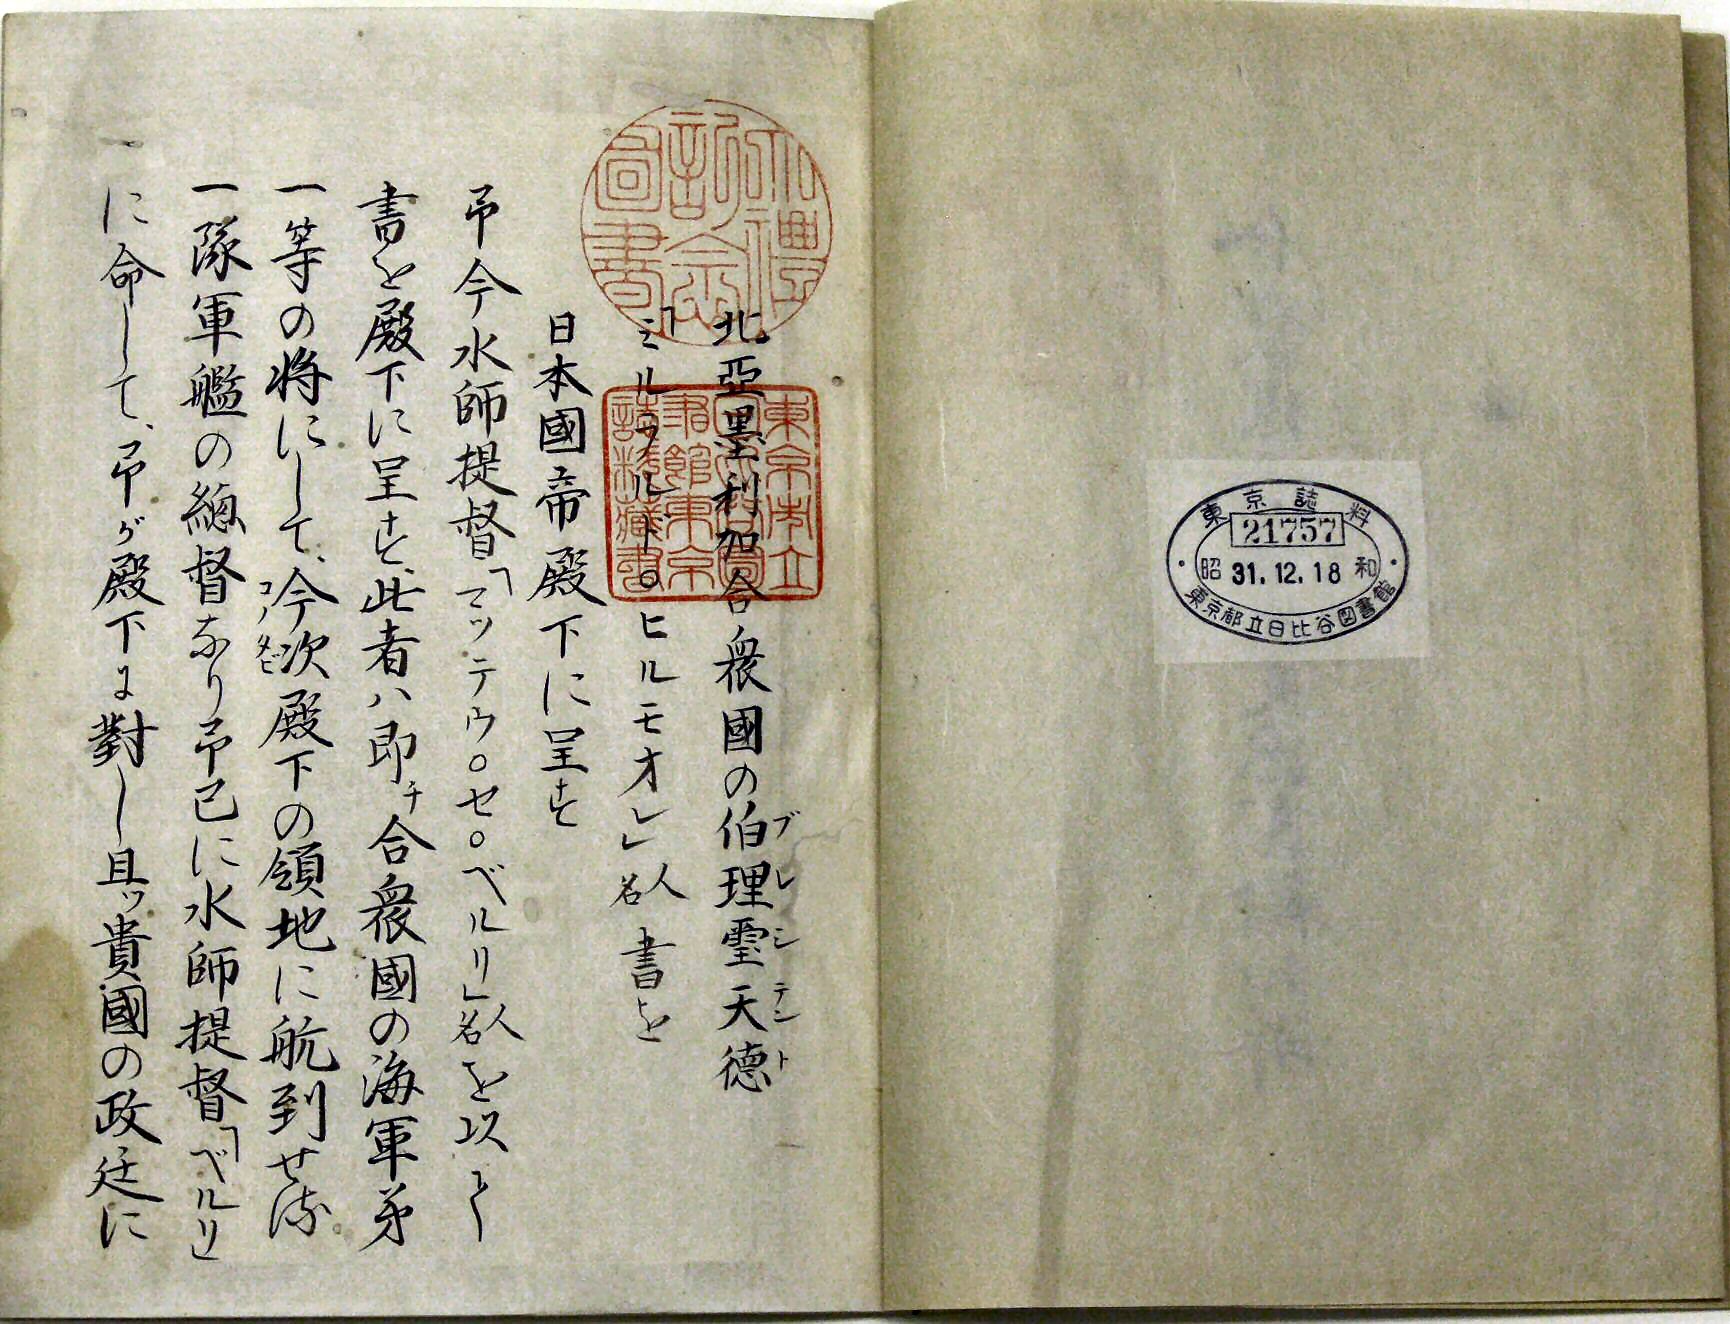 東京誌料
21757
昭 31.12.18 和
東京都立日比谷図書館
北亞墨利加合衆國の伯理璽天德
ブレシテント
「ミルラルト○ヒルモオレ」人名書を
日本國帝殿下に呈す
予今水師提督「マッテウ○セ○ベルリ」人名を以て
書を殿下に呈す、此者ハ即チ合衆國の海軍第
一等の将にして、今次殿下の領地に航到せる
コノタビ
一隊軍艦の總督なり予已に水師提督「ベルリ」
に命して、予が殿下に對し且ツ貴國の政廷に